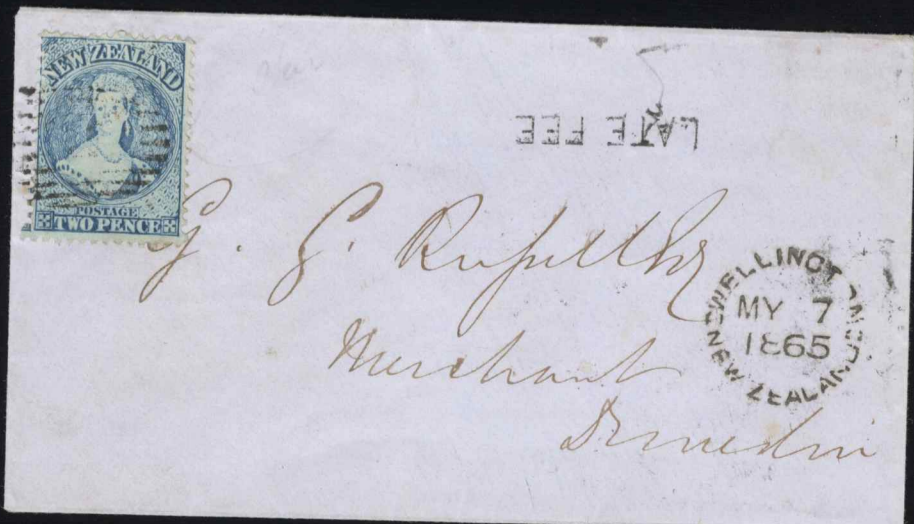 NEW ZEALAND
POSTAGE
TWO PENCE
LATE FEE
G. G. Russell Esq
Merchant
Dunedin
WELLINGTON
MY 7
1865
NEW ZEALAND